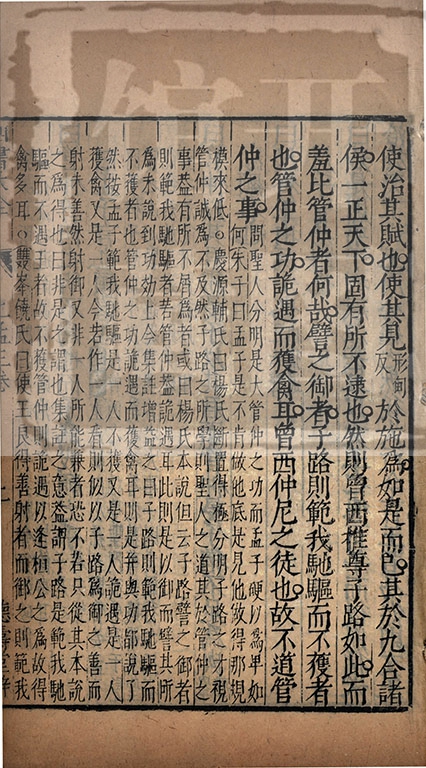 使治其賦也使其見形甸反於施爲如是而已其於九合諸
侯一正天下固有所不逮也然則曾西推尊子路如此而
羞比管仲者何哉譬之御者子路則範我馳驅而不獲者
也管仲之功詭遇而獲禽耳曾西仲尼之徒也故不道管
仲之事問聖人分明是大管仲之功而孟子硬以爲卑如
何朱子曰孟子是不肯做他底是見他做得那規
模來低○慶源輔氏曰楊氏斷置得極分明子路之才視
管仲誠爲不及然子路之所學則聖人之道其於管仲之
事葢有所不屑爲者或曰楊氏本說但云子路譬之御者
則範我馳驅者若管仲葢詭遇耳此則是以御而譬其所
爲未說到功効上今集註增益之曰子路則範我馳驅而
不獲者也管仲之功詭遇而獲禽耳則是并與功都說了
然按孟子範我馳驅是一人不獲又是一人詭遇是一人
獲禽又是一人今若作一人看則似以子路爲御之善而
射未善然射御又非一人所能兼者恐不若只從其本說
之爲得也曰非是之謂也集註之意葢謂子路是範我馳
驅而不遇王者故不獲管仲則詭遇以逢桓公之爲故得
禽多耳○雙峯饒氏曰使王良得善射者而御之則範我